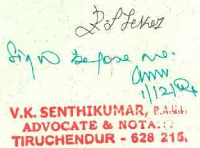 Sign before me.
1/12/04
V.K. SENTHIKUMAR, B.A.B.L.
ADVOCATE & NOTA
TIRUCHENDUR - 628 215.